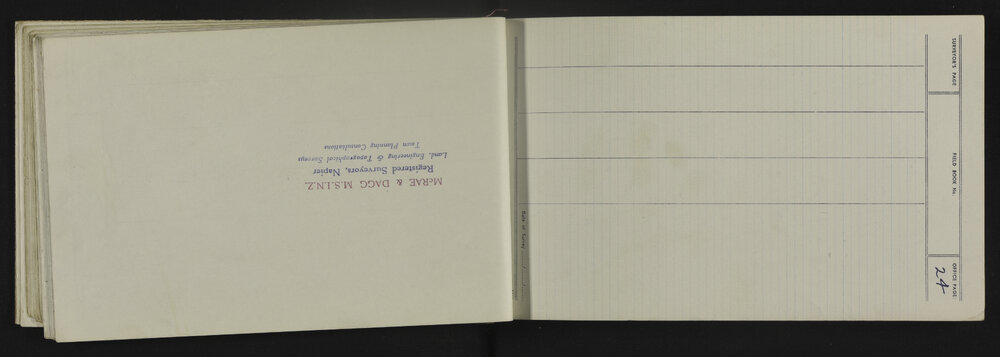 McRAE & DAGG M.S.I.N.Z.
Registered Surveyors, Napier
Land, Engineering & Topographical Surveys
Town Planning Consultations
Date of Survey
SURVEYOR'S PAGE
FIELD BOOK No.
OFFICE PAGE:
24